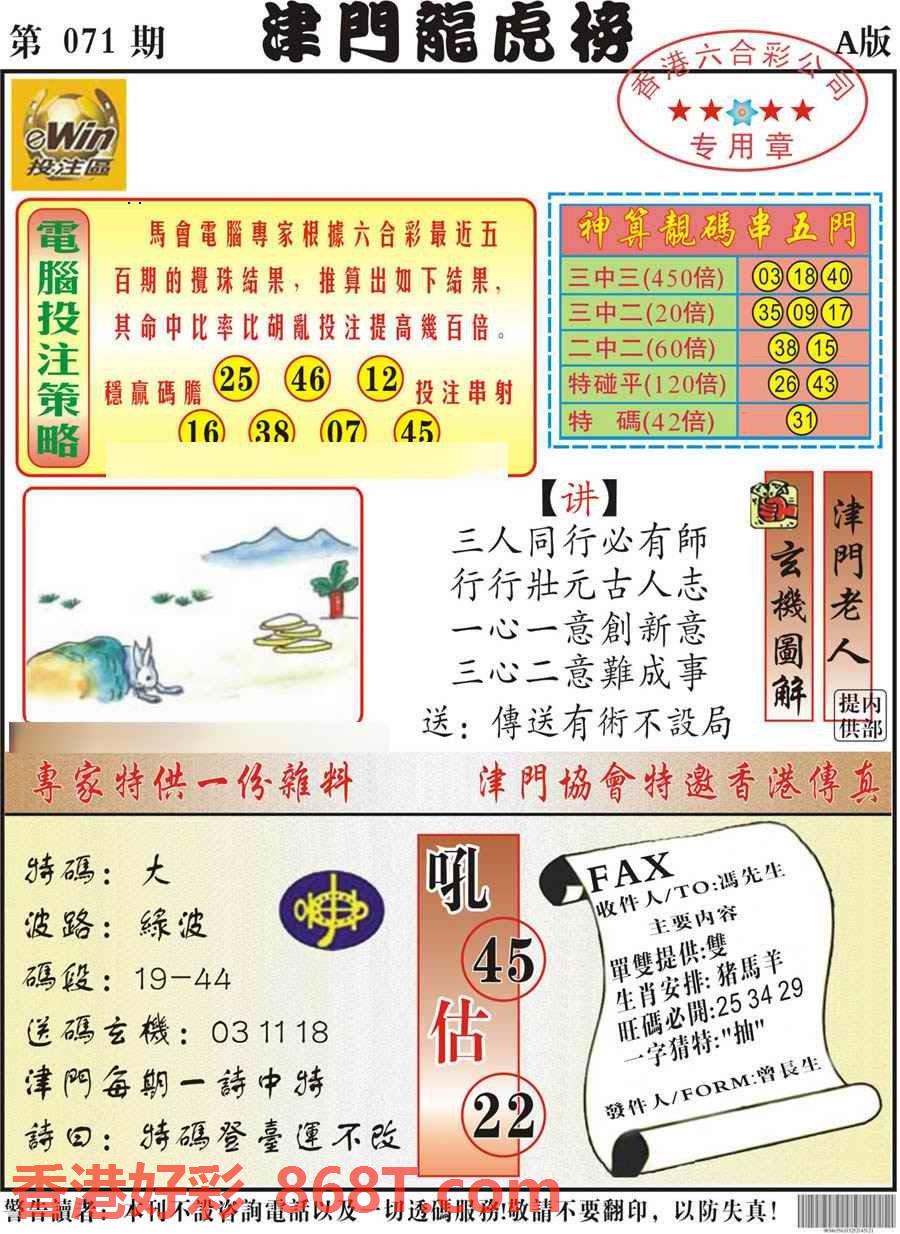 第 071 期
津門龍虎榜
A版
香港六合彩公司
专用章
eWin
投注區
電腦投注策略
馬會電腦專家根據六合彩最近五
百期的攪珠結果，推算出如下結果，
其命中比率比胡亂投注提高幾百倍。
穩贏碼膽 25 46 12 投注串射
16 38 07 45
神算靚碼串五門
三中三(450倍) 03 18 40
三中二(20倍) 35 09 17
二中二(60倍) 38 15
特碰平(120倍) 26 43
特 碼(42倍) 31
【讲】
三人同行必有師
行行壯元古人志
一心一意創新意
三心二意難成事
送：傳送有術不設局
玄機圖解
津門老人
内部提供
專家特供一份雜料
津門協會特邀香港傳真
特碼：大
波路：綠波
碼段：19-44
送碼玄機：03 11 18
津門每期一詩中特
詩曰：特碼登臺運不改
吼
45
估
22
FAX
收件人/TO:馮先生
主要内容
單雙提供:雙
生肖安排:猪馬羊
旺碼必開:25 34 29
一字猜特:"抽"
發件人/FORM:曾長生
香港好彩 868T.com
警告讀者：本刊不設咨詢電話以及一切透碼服務!敬請不要翻印，以防失真!